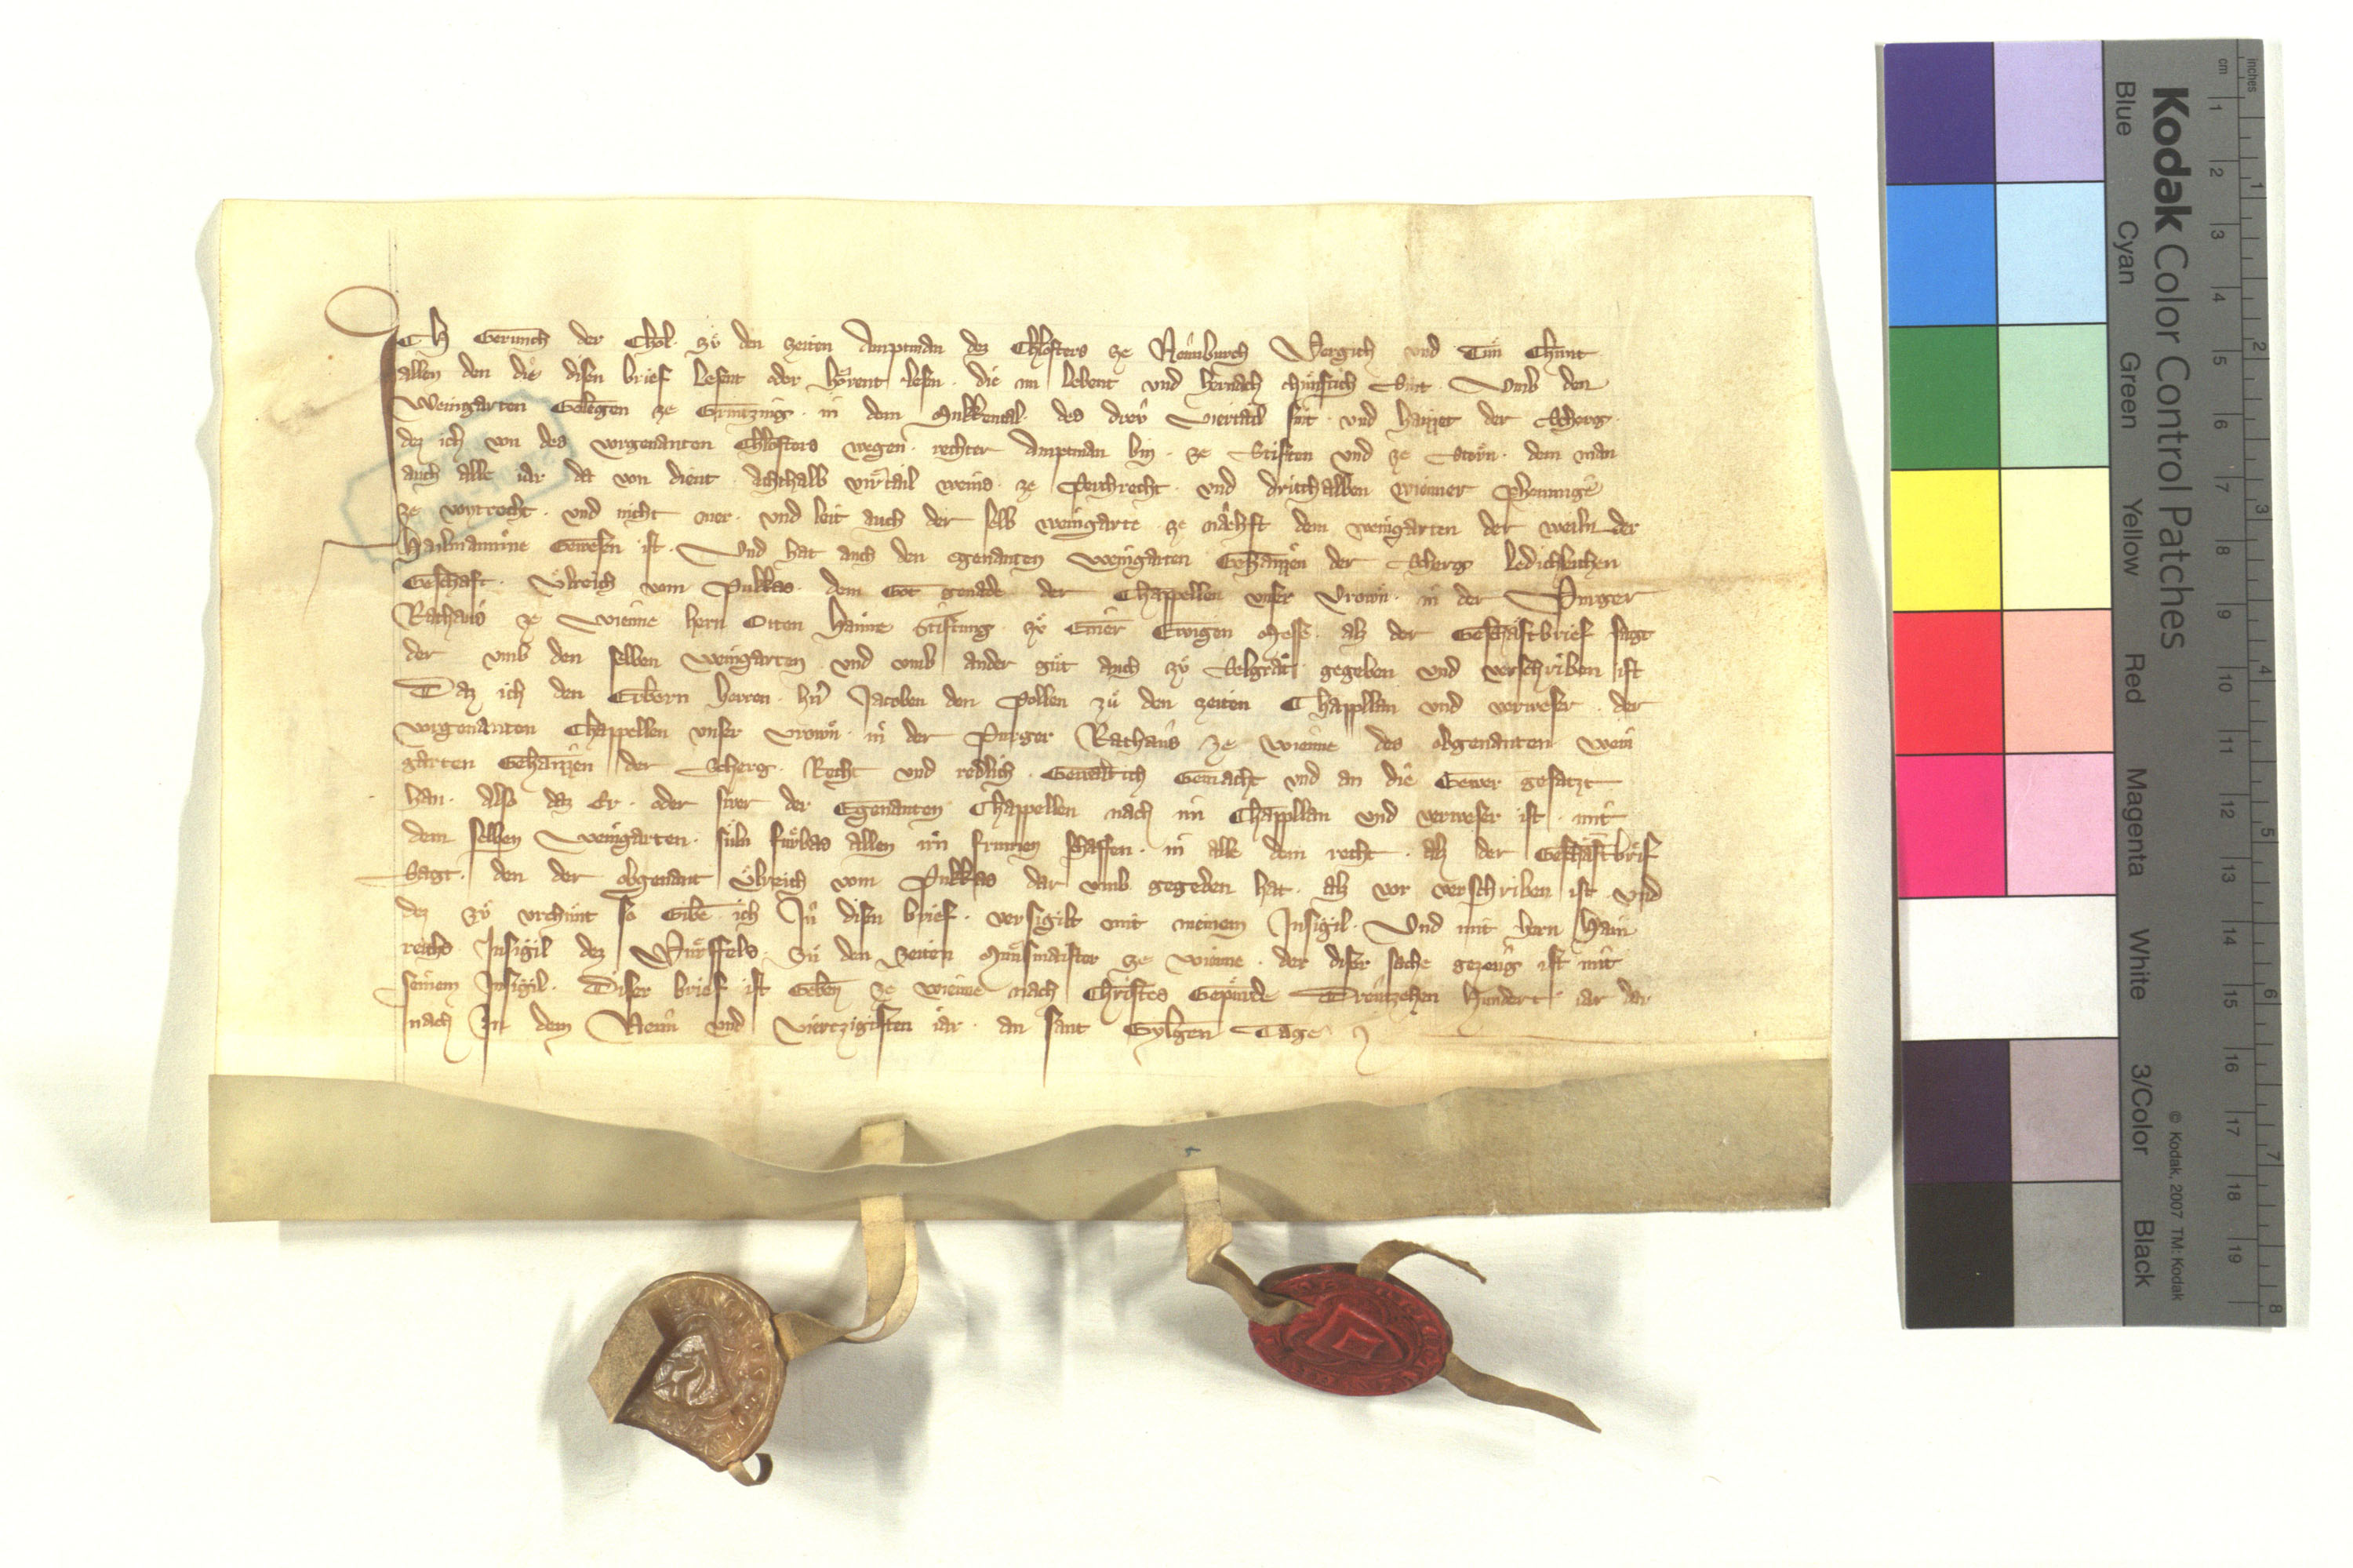 Ich Gerunch der Chol zů den zeiten Amptman dez Chlosters ze Neunburch Vergich und Tůn Chunt
allen den die disen brief Lesent oder hörent lesen die nu lebent und hernach chunftich Sint Umb den
Weingarten Gelegen ze Grintzing in dem Mukkental des drew Viertail sint und haizzet der Scherg
dez ich von des vorgenanten Chlosters wegen rechter Amptman bin ze Stiften und ze Stôrn dem man
auch alle iar da von dient Achthalb virtail weins ze Perchrecht und dritthalben wienner phenninge
ze voytrecht und nicht mer und leit auch der selb weingarte ze nâchst dem weingarten der weiln der
Hailmanninne Gewesen ist Und hat auch den genanten Weingarten Gehaizzen der Scherg Ledichleichen
Geschaft Ulreich vom Pukkas dem Got genade der Chappellen unser Vrown in der Purger
Rathaus ze Wienne hern Otten Haime Stiftung zů Einer Ewigen Messe als der Geschaftbrief sagt
der umb den selben weingarten und umb ander gůt auch zů Selgrât gegeben und verschriben ist
Daz ich den Erbern herren hern Jacoben den Pollen zů den zeiten Chappllan und verweser der
vorgenanten Chappellen unser vrown in der Purger Rathaus ze wienne des obgenanten wein
garten Gehaizzen der Scherg Recht und redlich Gewaltich Gemacht und an die Gewer gesatzt
han Also daz Er oder swer der Egenanten Chappellen nach im Chappllan und verweser ist mit
dem selben Weingarten sůln furbas allen irn frumen schaffen in alle dem recht als der Geschaftbrief
Sagt den der obgenant Ulreich vom Pukkas dar umb gegeben hat als vor verschriben ist Und
dez zů urchunt so Gibe ich In disen brief versigilt mit meinem Insigil Und mit hern Hain
reichs Insigil dez Wurffels zů den zeiten Munsmaister ze wienne der diser sache gezeug ist mit
seinem Insigil Diser brief ist Geben ze wienne nach Christes Gepurde Dreutzehen hundert iar dar
nach In dem Neun und Viertzigisten iar an sant Gylgen Tage
Kodak Color Control Patches
Blue Cyan Green Yellow Red Magenta White 3/Color Black
© Kodak, 2007 TM: Kodak
cm 1 2 3 4 5 6 7 8 9 10 11 12 13 14 15 16 17 18 19
inches 1 2 3 4 5 6 7 8